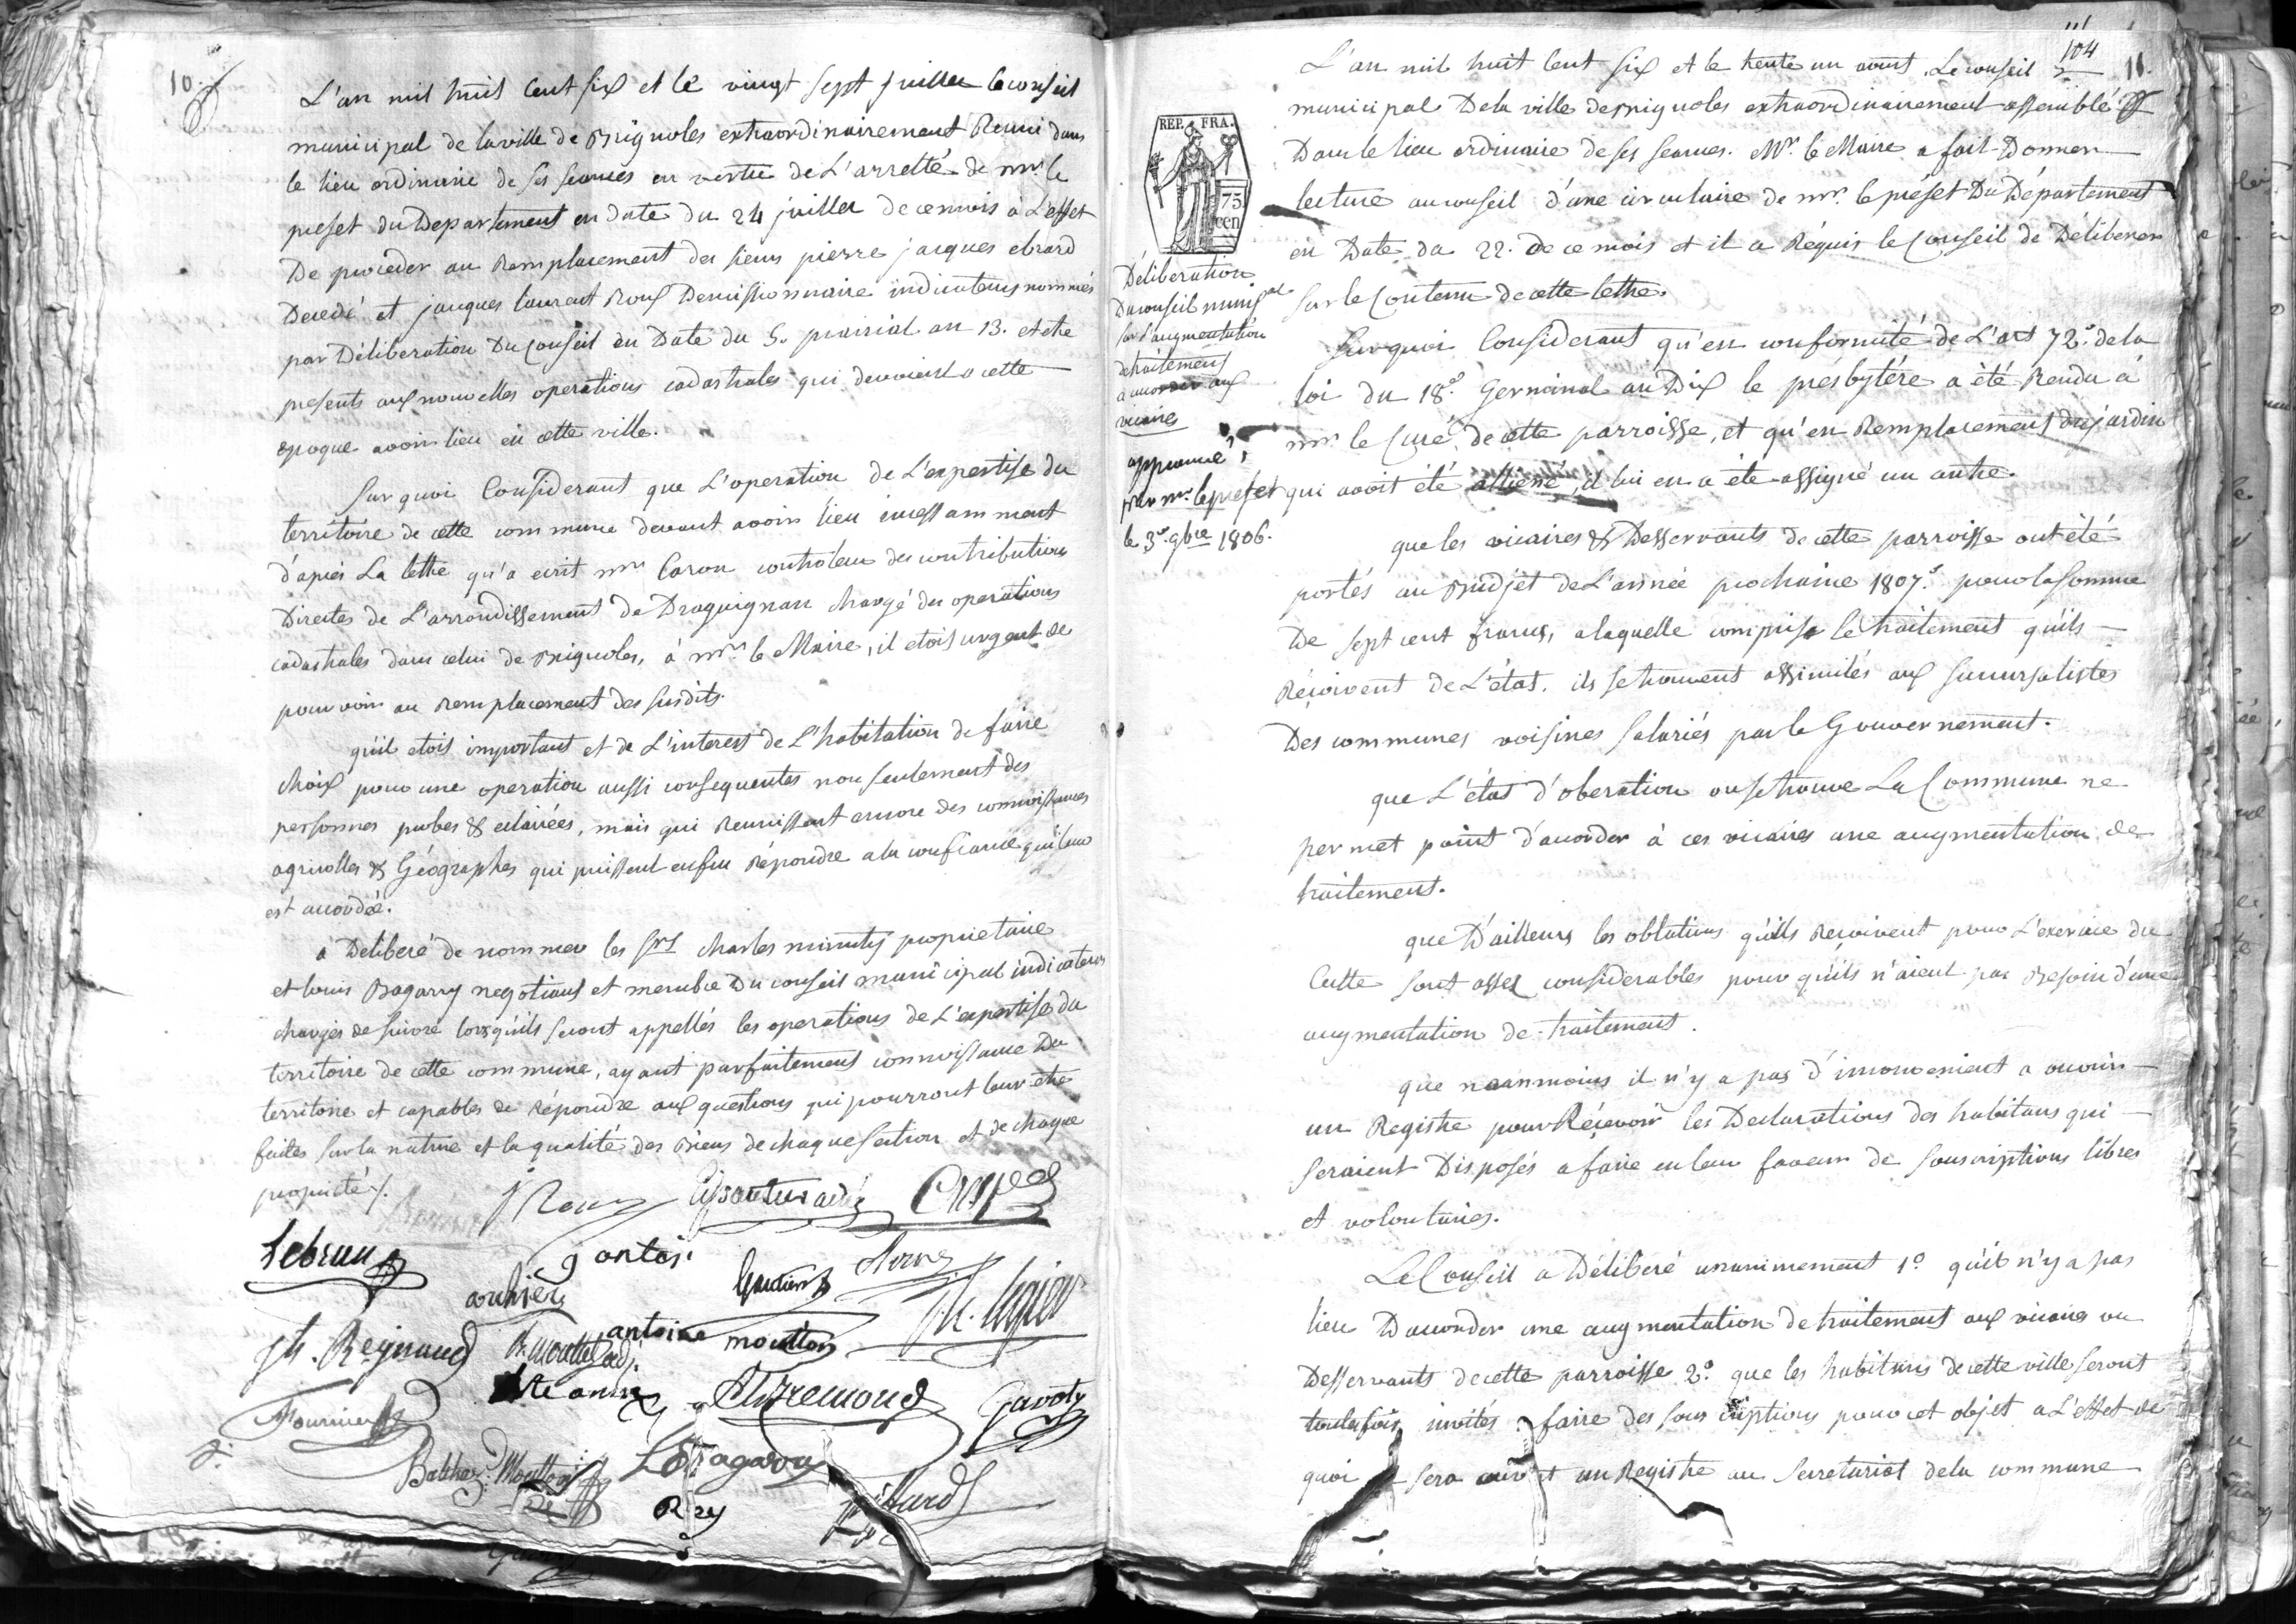 10.
L'an mil huit cent six et le vingt sept juillet le conseil
municipal de la ville de Brignoles extraordinairement Reuni dans
le lieu ordinaire de ses seances en vertu de L'arretté de mr. le
prefet du Departement en date du 24 juillet de ce mois à L'effet
De proceder au Remplacement des sieurs pierre jacques ebrard
Decedé et jacques laurent Roux Demissionnaire indicateurs nommés
par Déliberation Du Conseil en Date du 5. prairial an 13. et etre
presents aux nouvelles operations cadastrales qui devoient a cette
epoque avoir lieu en cette ville.
Sur quoi Considerant que L'operation de L'expertise du
territoire de cette commune devant avoir lieu incessamment
d'après La lettre qu'a ecrit mr. Caron controleur des contributions
Directes de L'arrondissement de Draguignan chargé des operations
cadastrales dans celui de Brignoles, à mr. le Maire, il etoit urgent de
pourvoir au Remplacement des susdits.
qu'il etoit important et de L'interest de L'habitation de faire
choix pour une operation aussi consequentes non seulement des
personnes probes & eclairées, mais qui Reunissent encore des connoissances
agricolles & Géographes qui puissent enfin Répondre a la confiance qui leur
est accordée.
à Deliberé de nommer les Srs charles minuty proprietaire
et louis Bagarry negotiant et membre Du conseil municipal indicateurs
chargés de suivre lorsqu'ils seront appellés les operations de L'expertise du
territoire de cette commune, ayant parfaitement connoissance Du
territoire et capables de Répondre aux questions qui pourront leur etre
faites sur la nature et la qualité des Biens de chaque section et de chaque
proprieté.
Lebrun
gontois
antoine moutton
Jh. Reynaud
Fournier
Gavoty
Balthaz. Moutton
Rey
104
11.
L'an mil huit Cent six et le trente un aout, Le conseil
municipal De la ville de Brignoles extraordinairement assemblé
Dans le lieu ordinaire de ses seances. Mr. le Maire a fait Donner
lecture au conseil d'une circulaire de mr. le préfet Du Département
en Date du 22. de ce mois et il a Réquis le Conseil de Déliberer
sur le Contenu de cette lettre.
REP. FRA.
75
cen
Déliberation
Du conseil munipal
sur l'augmentation
de traitement
a accorder aux
vicaires
approuvé
par mr. le prefet
le 3e. 9bre 1806.
Sur quoi Considerant qu'en conformité de L'art 72e. de la
loi du 18e. Germinal an Dix le presbytére a été Rendu à
mr. le Curé de cette parroisse, et qu'en Remplacement du jardin
qui avoit été alliéné, il lui en a été assigné un autre.
que les vicaires & Desservants de cette parroisse ont été
portés au Budjet de L'année prochaine 1807. pour la somme
De sept cent francs, a laquelle comprise le traitement qu'ils
Réçoivent de L'état. ils se trouvent assimilés aux succursalistes
Des communes voisines salariés par le Gouvernement.
que L'état d'oberation ou se trouve La Commune ne
permet point d'accorder à ces vicaires une augmentation de
traitement.
que D'ailleurs les oblations qu'ils Reçoivent pour L'exercice du
Culte sont assez considerables pour qu'ils n'aient pas Besoin d'une
augmentation de traitement.
que neanmoins il n'y a pas d'inconvenient a ouvrir
un Registre pour Réçevoir les Declarations des habitans qui
seraient Disposés a faire en leur faveur de souscriptions libres
et volontaires.
Le Conseil a Déliberé unanimement 1o. qu'il n'y a pas
lieu D'accorder une augmentation de traitement aux vicaires ou
Desservants de cette parroisse 2o. que les habitans de cette ville seront
toutefois invités a faire des souscriptions pour cet objet a L'effet de
quoi sera ouvert un Registre au Secretariat de la commune